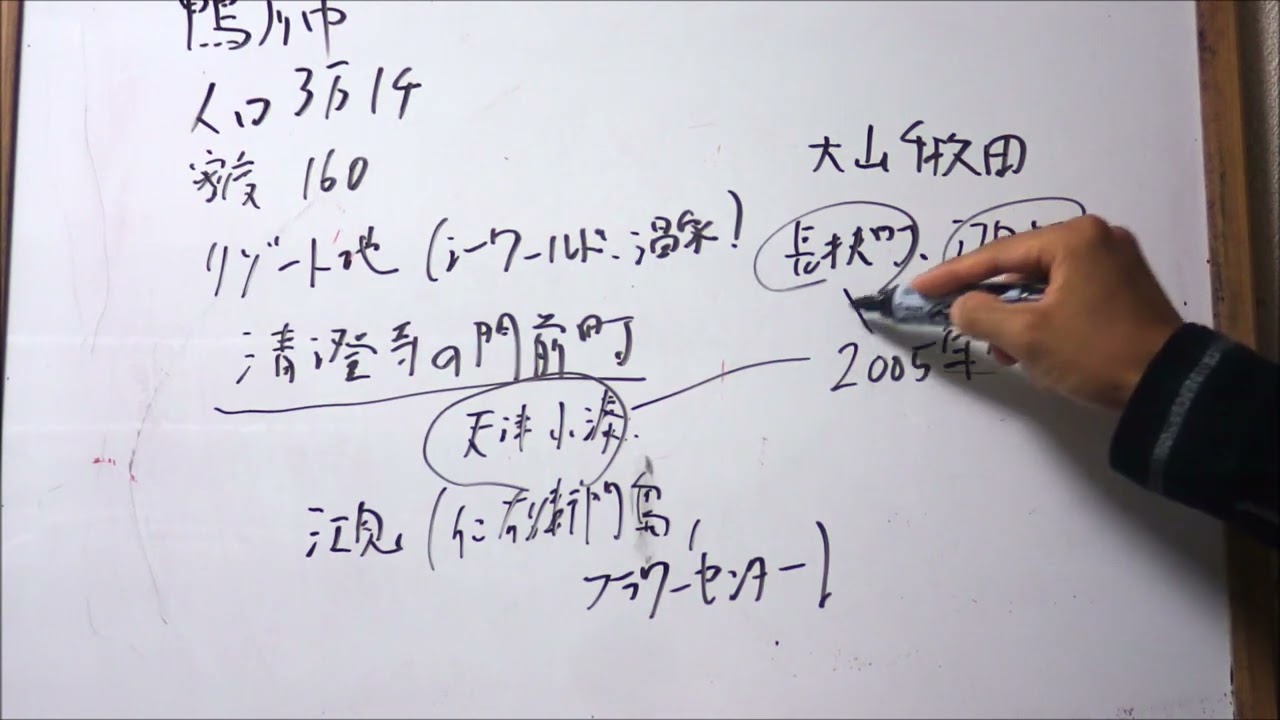 鴨川市
人口 3万1千
密度 160
リゾート地 (シーワールド、温泉)
清澄寺の門前町
天津小湊
江見 (仁右衛門島,
フラワーセンター)
大山千枚田
長狭町、江見町
2005年